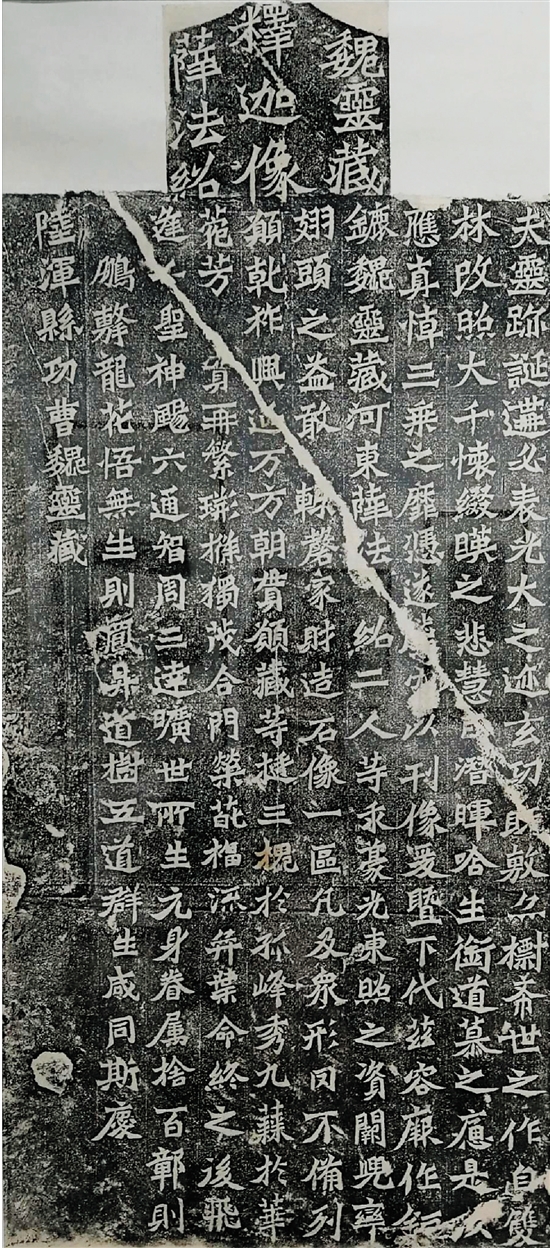 魏靈藏
釋迦像
薛法紹
夫靈跡誕遘必表光大之迹玄功既敷亦標希世之作自雙
林改照大千懷綴暎之悲慧日潛暉哈生銜道慕之痛是以
應真悼三乘之靡憑遂空以刊像爰暨下代茲容厥作鉅
鏕魏靈藏河東薛法紹二人等求豪光東照之資闕兜率
翅頭之益敢輒罄家財造石像一區凡及眾形罔不備列
願乾祚興延万方朝貫願藏等挺三槐於孤峰秀九蕀於華
苑芳實再繁條獨茂合門榮葩福流奕葉命終之後飛
逢千聖神颺六通智周三達曠世所生元身眷屬捨百鄣則
鵬擊龍花悟無生則鳳昇道樹五道群生咸同斯慶
陸渾縣功曹魏靈藏